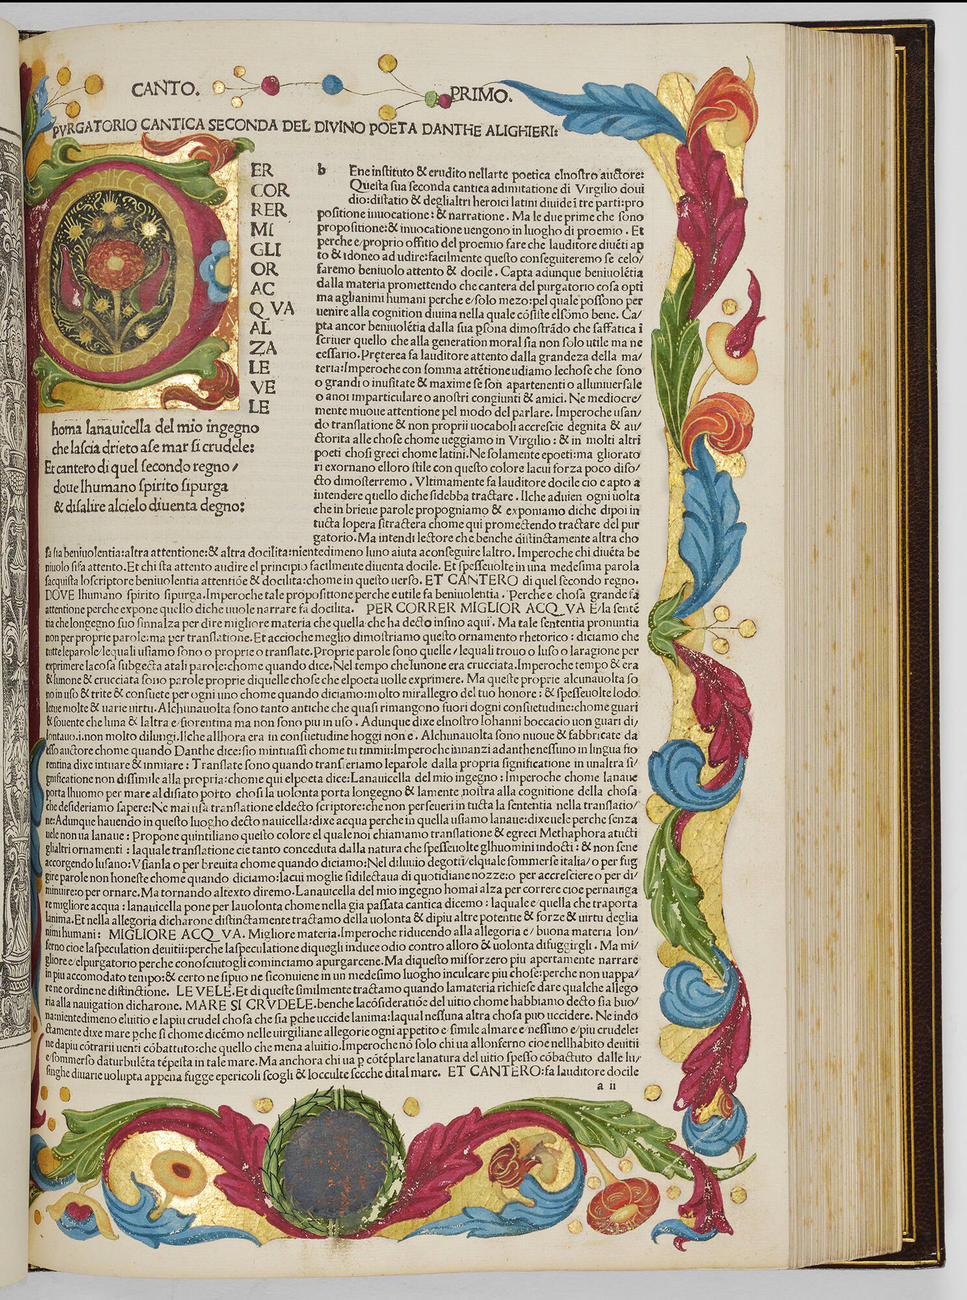 CANTO. PRIMO.
PVRGATORIO CANTICA SECONDA DEL DIVINO POETA DANTHE ALIGHERI:
PER
COR
RER
MI
GLI
OR
AC
QVA
AL
ZA
LE
VE
LE
homa lanauicella del mio ingegno
che lascia drieto ase mar si crudele:
Et cantero di quel secondo regno/
doue lhumano spirito sipurga
& disalire alcielo diuenta degno:
b Ene instituto & erudito nellarte poetica elnostro auctore:
Questa sua seconda cantica adimitatione di Virgilio doui
dio: distatio & deglialtri heroici latini diuide i tre parti: pro
positione inuocatione: & narratione. Ma le due prime che sono
propositione: & inuocatione uengono in luogho di proemio. Et
perche e/proprio offitio del proemio fare che lauditore diuēti ap
to & idoneo ad udire: facilmente questo conseguiteremo se celo/
faremo beniuolo attento & docile. Capta adunque beniuolētia
dalla materia promettendo che cantera del purgatorio cosa opti
ma aglianimi humani perche e/solo mezo: pel quale possono per
uenire alla cognition diuina nella quale cōsiste elsōmo bene. Ca/
pta ancor beniuolētia dalla sua psona dimostrādo che saffatica i
scriuer quello che alla generation moral sia non solo utile ma ne
cessario. Preterea fa lauditore attento dalla grandeza della ma/
teria: Imperoche con somma attētione udiamo lechose che sono
o grandi o inusitate & maxime se son apartenenti o alluniuersale
o anoi imparticulare o anostri congiunti & amici. Ne mediocre/
mente muoue attentione pel modo del parlare. Imperoche usan/
do translatione & non proprii uocaboli accrescie degnita & au/
ctorita alle chose chome ueggiamo in Virgilio: & in molti altri
poeti chosi greci chome latini. Ne solamente epoeti: ma glioratо
ri exornano elloro stile con questo colore lacui forza poco diso/
cto dimosterremo. Vltimamente fa lauditore docile cio e apto a
intendere quello diche sidebba tractare. Ilche aduien ogni uolta
che in brieue parole propogniamo & exponiamo diche dipoi in
tucta lopera sitractera chome qui promectendo tractare del pur
gatorio. Ma intendi lectore che benche distinctamente altra cho
sa sia beniuolentia: altra attentione: & altra docilita: nientedimeno luno aiuta aconseguire laltro. Imperoche chi diuēta be
niuolo sifa attento. Et chi sta attento audire el principio facilmente diuenta docile. Et spesseuolte in una medesima parola
sacquista loscriptore beniuolentia attentiōe & docilita: chome in questo uerso. ET CANTERO di quel secondo regno.
DOVE lhumano spirito sipurga. Imperoche tale propositione perche e utile fa beniuolentia. Perche e chosa grande fa
attentione perche expone quello diche uuole narrare fa docilita. PER CORRER MIGLIOR ACQVA E/la sentē
tia che longegno suo sinnalza per dire migliore materia che quella che ha decto insino aqui. Ma tale sententia pronuntia
non per proprie parole: ma per translatione. Et accioche meglio dimostriamo questo ornamento rhetorico: diciamo che
tutte leparole/lequali usiamo sono o proprie o translate. Proprie parole sono quelle/lequali trouo o luso o laragione per
exprimere lacosa subgecta atali parole: chome quando dice. Nel tempo che Iunone era crucciata. Imperoche tempo & era
& Iunone & crucciata sono parole proprie diquelle chose che elpoeta uolle exprimere. Ma queste proprie alcunauolta so
no in uso & trite & consuete per ogni uno chome quando diciamo: molto mirallegro del tuo honore: & spesseuolte lodo
letue molte & uarie uirtu. Alchunauolta sono tanto antiche che quasi rimangono fuori dogni consuetudine: chome guari
& souente che luna & laltra e/fiorentina ma non sono piu in uso. Adunque dixe elnostro Iohanni boccacio non guari di/
lontauo.i.non molto dilungi. Ilche allhora era in consuetudine hoggi non e. Alchunauolta sono nuoue & fabbricate da
esso auctore chome quando Danthe dice: sio mintuassi chome tu timmii: Imperoche innanzi adanthe nessuno in lingua fio
rentina dixe intuare & inmiare: Translate sono quando transferiamo leparole dalla propria significatione in unaltra si/
gnificatione non dissimile alla propria: chome qui elpoeta dice: Lanauicella del mio ingegno: Imperoche chome lanaue
porta lhuomo per mare al disiato porto chosi la uolonta porta longegno & lamente nostra alla cognitione della chosa
che desideriamo sapere: Ne mai usa translatione eldecto scriptore: che non perseueri in tucta la sententia nella translatio/
ne: Adunque hauendo in questo luogho decto nauicella: dixe acqua perche in quella usiamo lanaue: dixe uele perche senza
uele non ua lanaue: Propone quintiliano questo colore el quale noi chiamamo translatione & egreci Methaphora atucti
glialtri ornamenti: laquale translatione cie tanto conceduta dalla natura che spesseuolte glhuomini indocti: & non sene
accorgendo lusano: Vsianla o per breuita chome quando diciamo: Nel diluuio degoti/elquale sommerse italia/o per fug
gire parole non honeste chome quando diciamo: lacui moglie sidilectaua di quotidiane nozze: o per accresciere o per di/
minuire: o per ornare. Ma tornando altexto diremo. Lanauicella del mio ingegno homai alza per correre cioe pernauiga
re migliore acqua: lanauicella pone per lauolonta chome nella gia passata cantica dicemo: laquale e quella che traporta
lanima. Et nella allegoria dicharone distinctamente tractamo della uolonta & dipiu altre potentie & forze & uirtu deglia
nimi humani: MIGLIORE ACQVA. Migliore materia. Imperoche riducendo alla allegoria e/buona materia lon/
ferno cioe laspeculation deuitii: perche laspeculatione diquegli induce odio contro alloro & uolonta difuggirgli. Ma mi/
gliore e/elpurgatorio perche conosciutogli cominciamo apurgarcene. Ma diquesto misforzero piu apertamente narrare
in piu accomodato tempo: & certo ne sipuo ne siconuiene in un medesimo luogho inculcare piu chose: perche non uappa/
re ne ordine ne distinctione. LE VELE. Et di queste similmente tractamo quando lamateria richiese dare qualche allego
ria alla nauigation dicharone. MARE SI CRVDELE. benche lacōsideratiōe del uitio chome habbiamo decto sia buo/
na: nientedimeno eluitio e lapiu crudel chosa che sia pche uccide lanima: laqual nessuna altra chosa puo uccidere. Ne indo
ctamente dixe mare pche si chome dicēmo nelle uirgiliane allegorie ogni appetito e simile almare e/nessuno e/piu crudele:
ne dapiu cōtrarii uenti cōbattuto: che quello che mena aluitio. Imperoche nō solo chi ua allonferno cioe nellhabito deuitii
e/sommerso daturbulēta tēpesta in tale mare. Ma anchora chi ua p cōtēplare lanatura del uitio spesso cōbactuto dalle lu/
singhe diuarie uolupta appena fugge epericoli scogli & locculte secche dital mare. ET CANTERO: fa lauditore docile
a ii